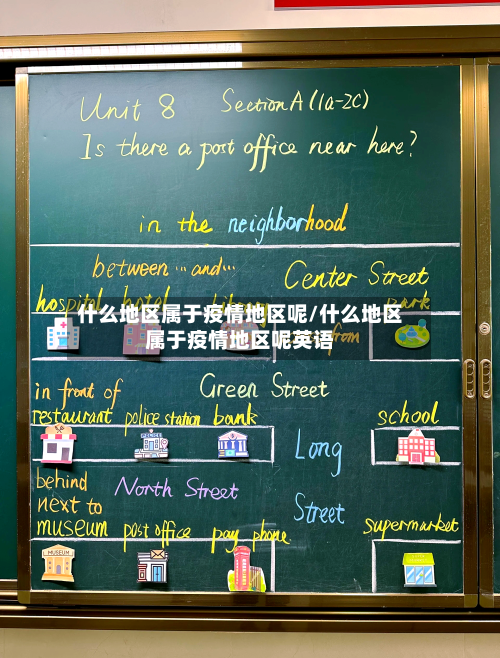 Unit 8 Section A (1a-2c)
Is there a post office near here?
in the neighborhood
between ... and ...
Center Street
hospital hotel library park
什么地区属于疫情地区呢/什么地区
属于疫情地区呢英语
from
in front of Green Street
restaurant police station bank school
Long
behind
North Street
next to
Street
museum post office pay phone supermarket
MUSEUM